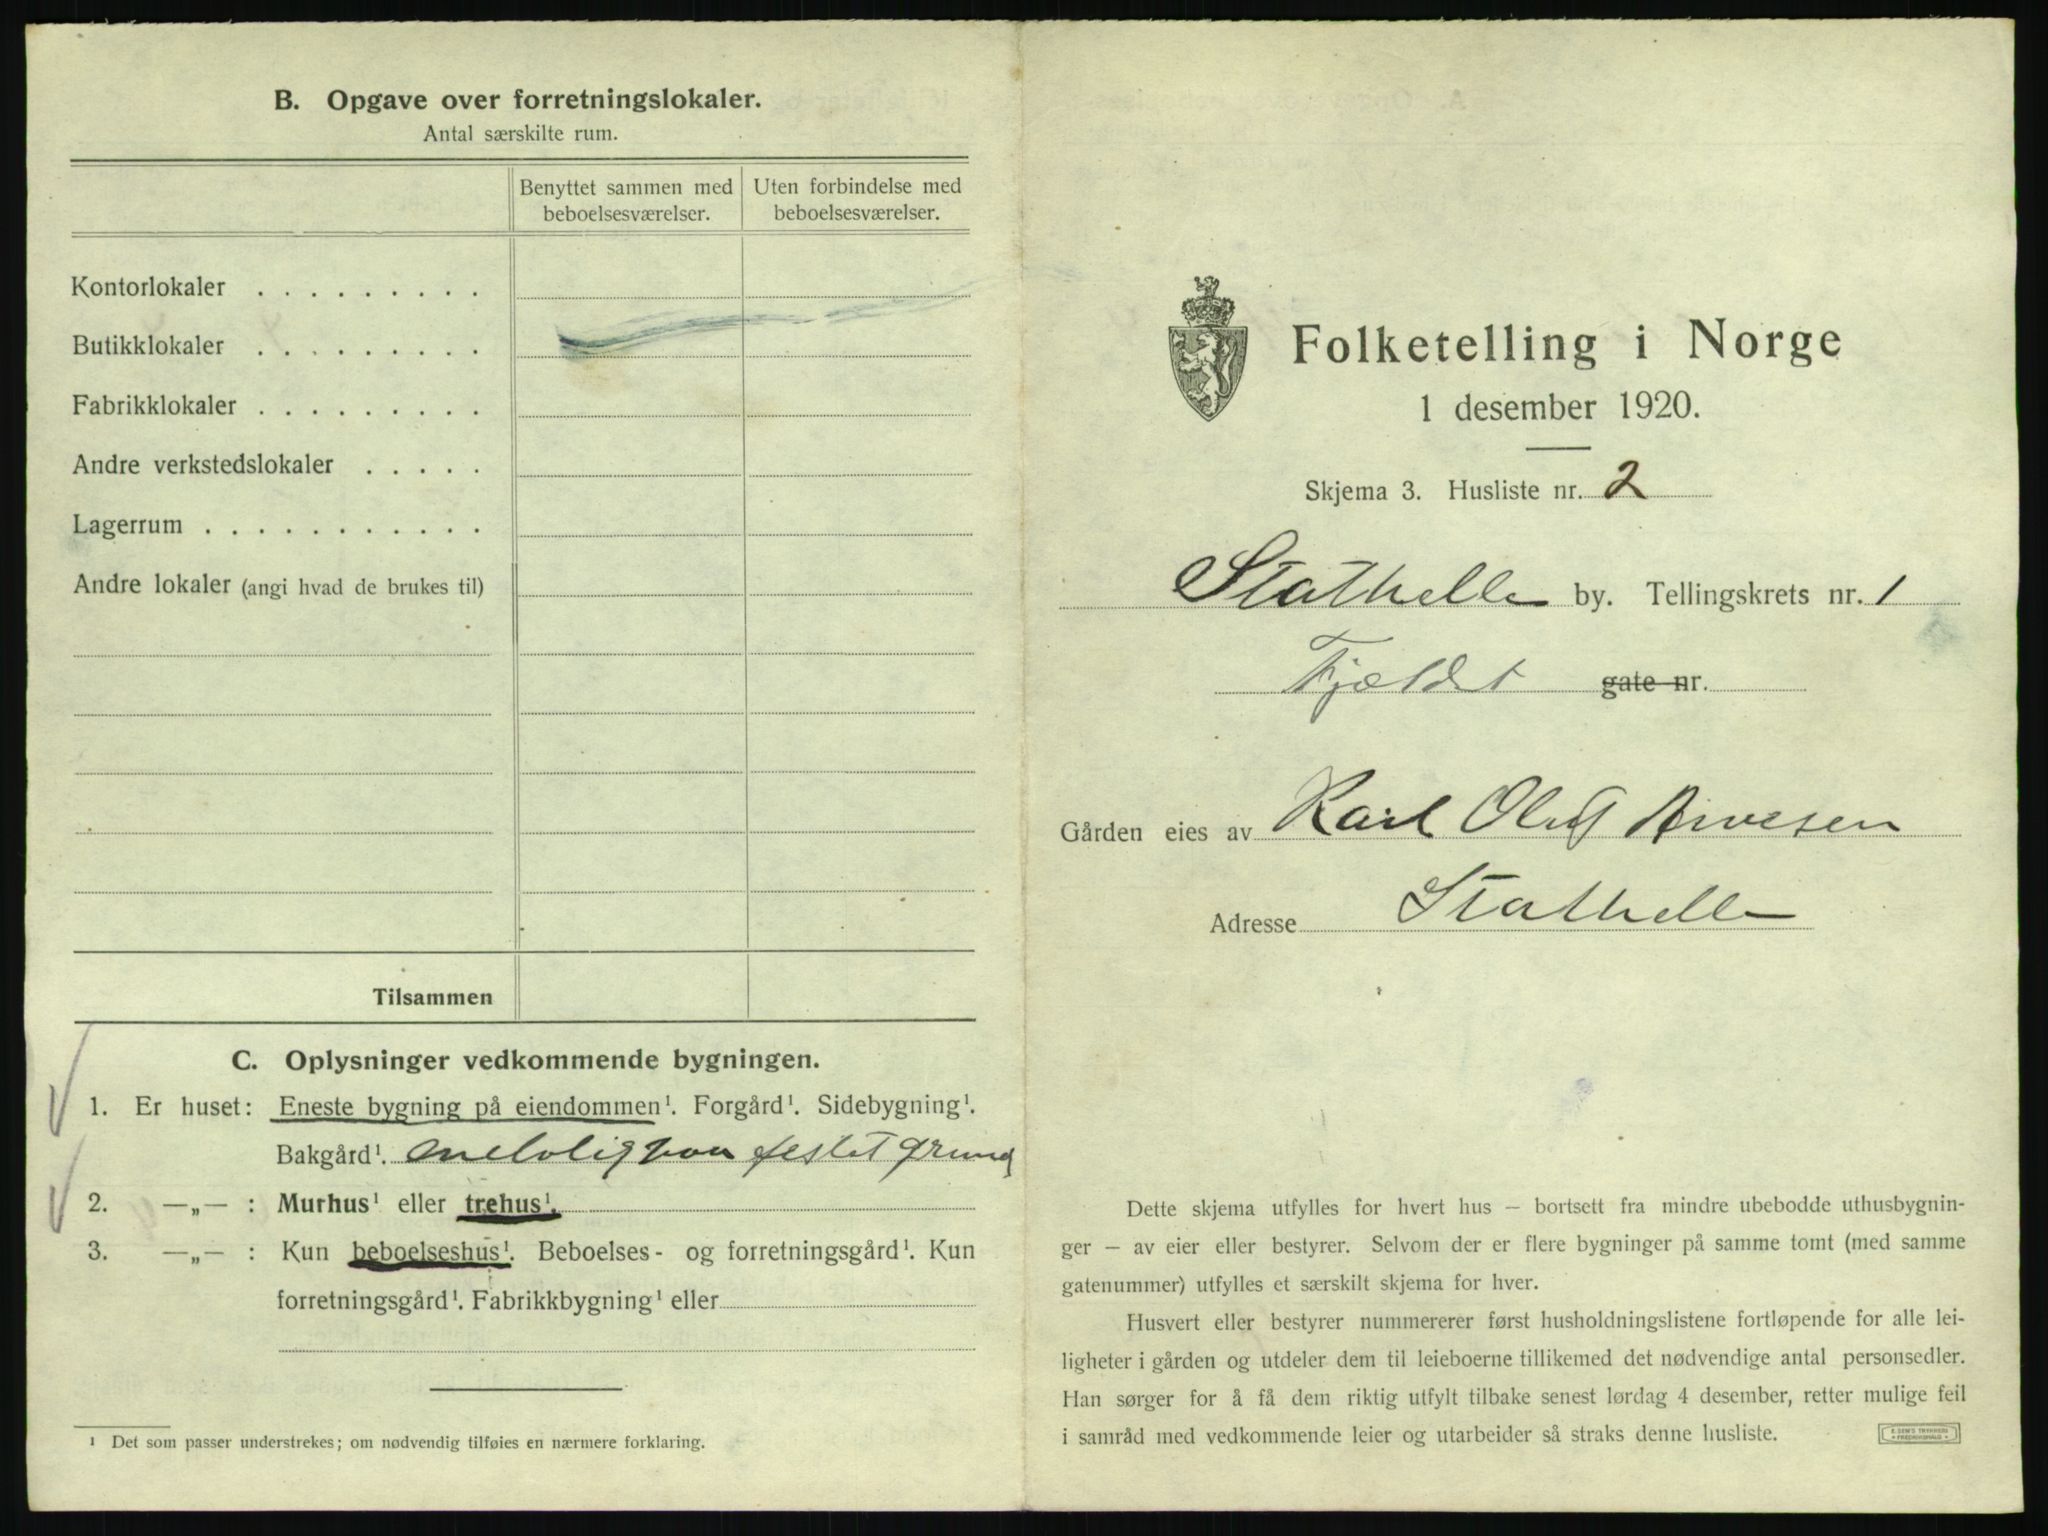 B. Opgave over forretningslokaler.
Antal særskilte rum.
Benyttet sammen med beboelsesværelser.
Uten forbindelse med beboelsesværelser.
Kontorlokaler . . . . . . . . .
Butikklokaler . . . . . . . . .
Fabrikklokaler . . . . . . . . .
Andre verkstedslokaler . . . . .
Lagerrum . . . . . . . . . . .
Andre lokaler (angi hvad de brukes til)
Tilsammen
C. Oplysninger vedkommende bygningen.
1. Er huset: Eneste bygning på eiendommen¹. Forgård¹. Sidebygning¹.
Bakgård¹. festet grund
2. —„— : Murhus¹ eller trehus¹.
3. —„— : Kun beboelseshus¹. Beboelses- og forretningsgård¹. Kun
forretningsgård¹. Fabrikkbygning¹ eller
¹ Det som passer understrekes; om nødvendig tilføies en nærmere forklaring.
Folketelling i Norge
1 desember 1920.
Skjema 3. Husliste nr. 2
Stathelle by. Tellingskrets nr. 1
Fjeldet gate nr.
Gården eies av Karl Oluf Arvesen
Adresse Stathelle
Dette skjema utfylles for hvert hus – bortsett fra mindre ubebodde uthusbygnin-
ger – av eier eller bestyrer. Selvom der er flere bygninger på samme tomt (med samme
gatenummer) utfylles et særskilt skjema for hver.
Husvert eller bestyrer nummererer først husholdningslistene fortløpende for alle lei-
ligheter i gården og utdeler dem til leieboerne tillikemed det nødvendige antal personsedler.
Han sørger for å få dem riktig utfylt tilbake senest lørdag 4 desember, retter mulige feil
i samråd med vedkommende leier og utarbeider så straks denne husliste.
E. SEM'S TRYKKERI
FREDRIKSHALD